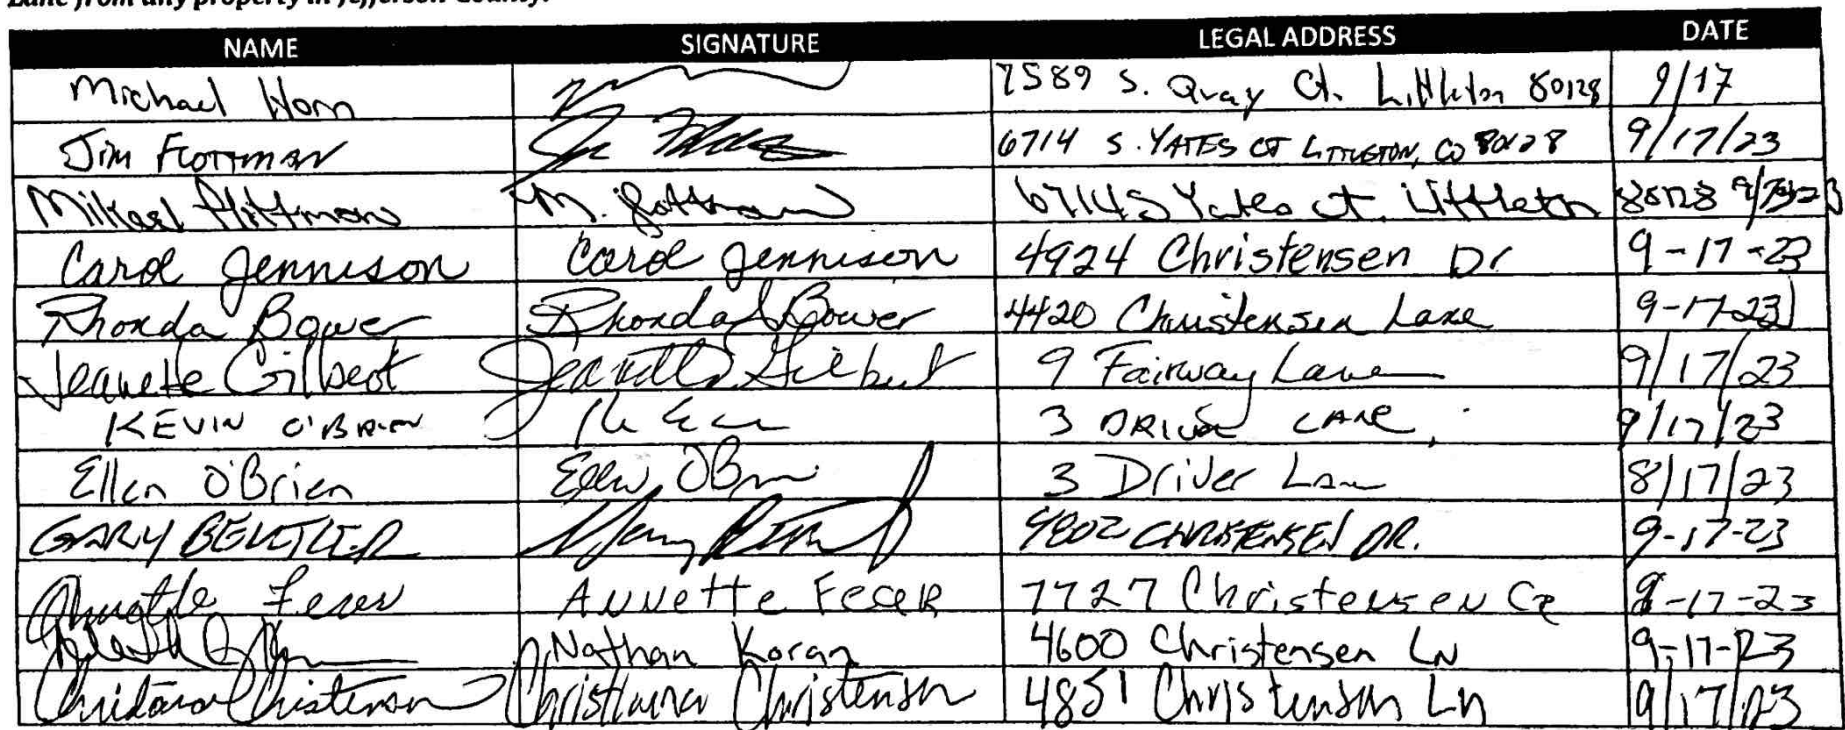 Lane from any property in Jefferson County.
NAME SIGNATURE LEGAL ADDRESS DATE
Michael Horn 7589 S. Quay Ct. Littleton 80128 9/17
Jim Flottman 6714 S. YATES CT LITTLETON, CO 80128 9/17/23
M. 6714 S Yates ct. Littleton 80128
Carol Jennison Carol Jennison 4924 Christensen Dr 9-17-23
Rhonda Bower Rhonda Bower 4420 Christensen Lane 9-17-23
Jeanette Gilbert Jeanette Gilbert 9 Fairway Lane 9/17/23
KEVIN O'BRIEN 3 DRIVER LANE 9/17/23
Ellen O'Brien Ellen O'Brien 3 Driver Lane 8/17/23
GARY 4802 CHRISTENSEN DR. 9-17-23
Annette Fecer ANNette FeceR Christensen -17-23
Nathan Koran 4600 Christensen LN 9-17-23
Christensen Christensen 4851 Christensen Ln 9/17/23